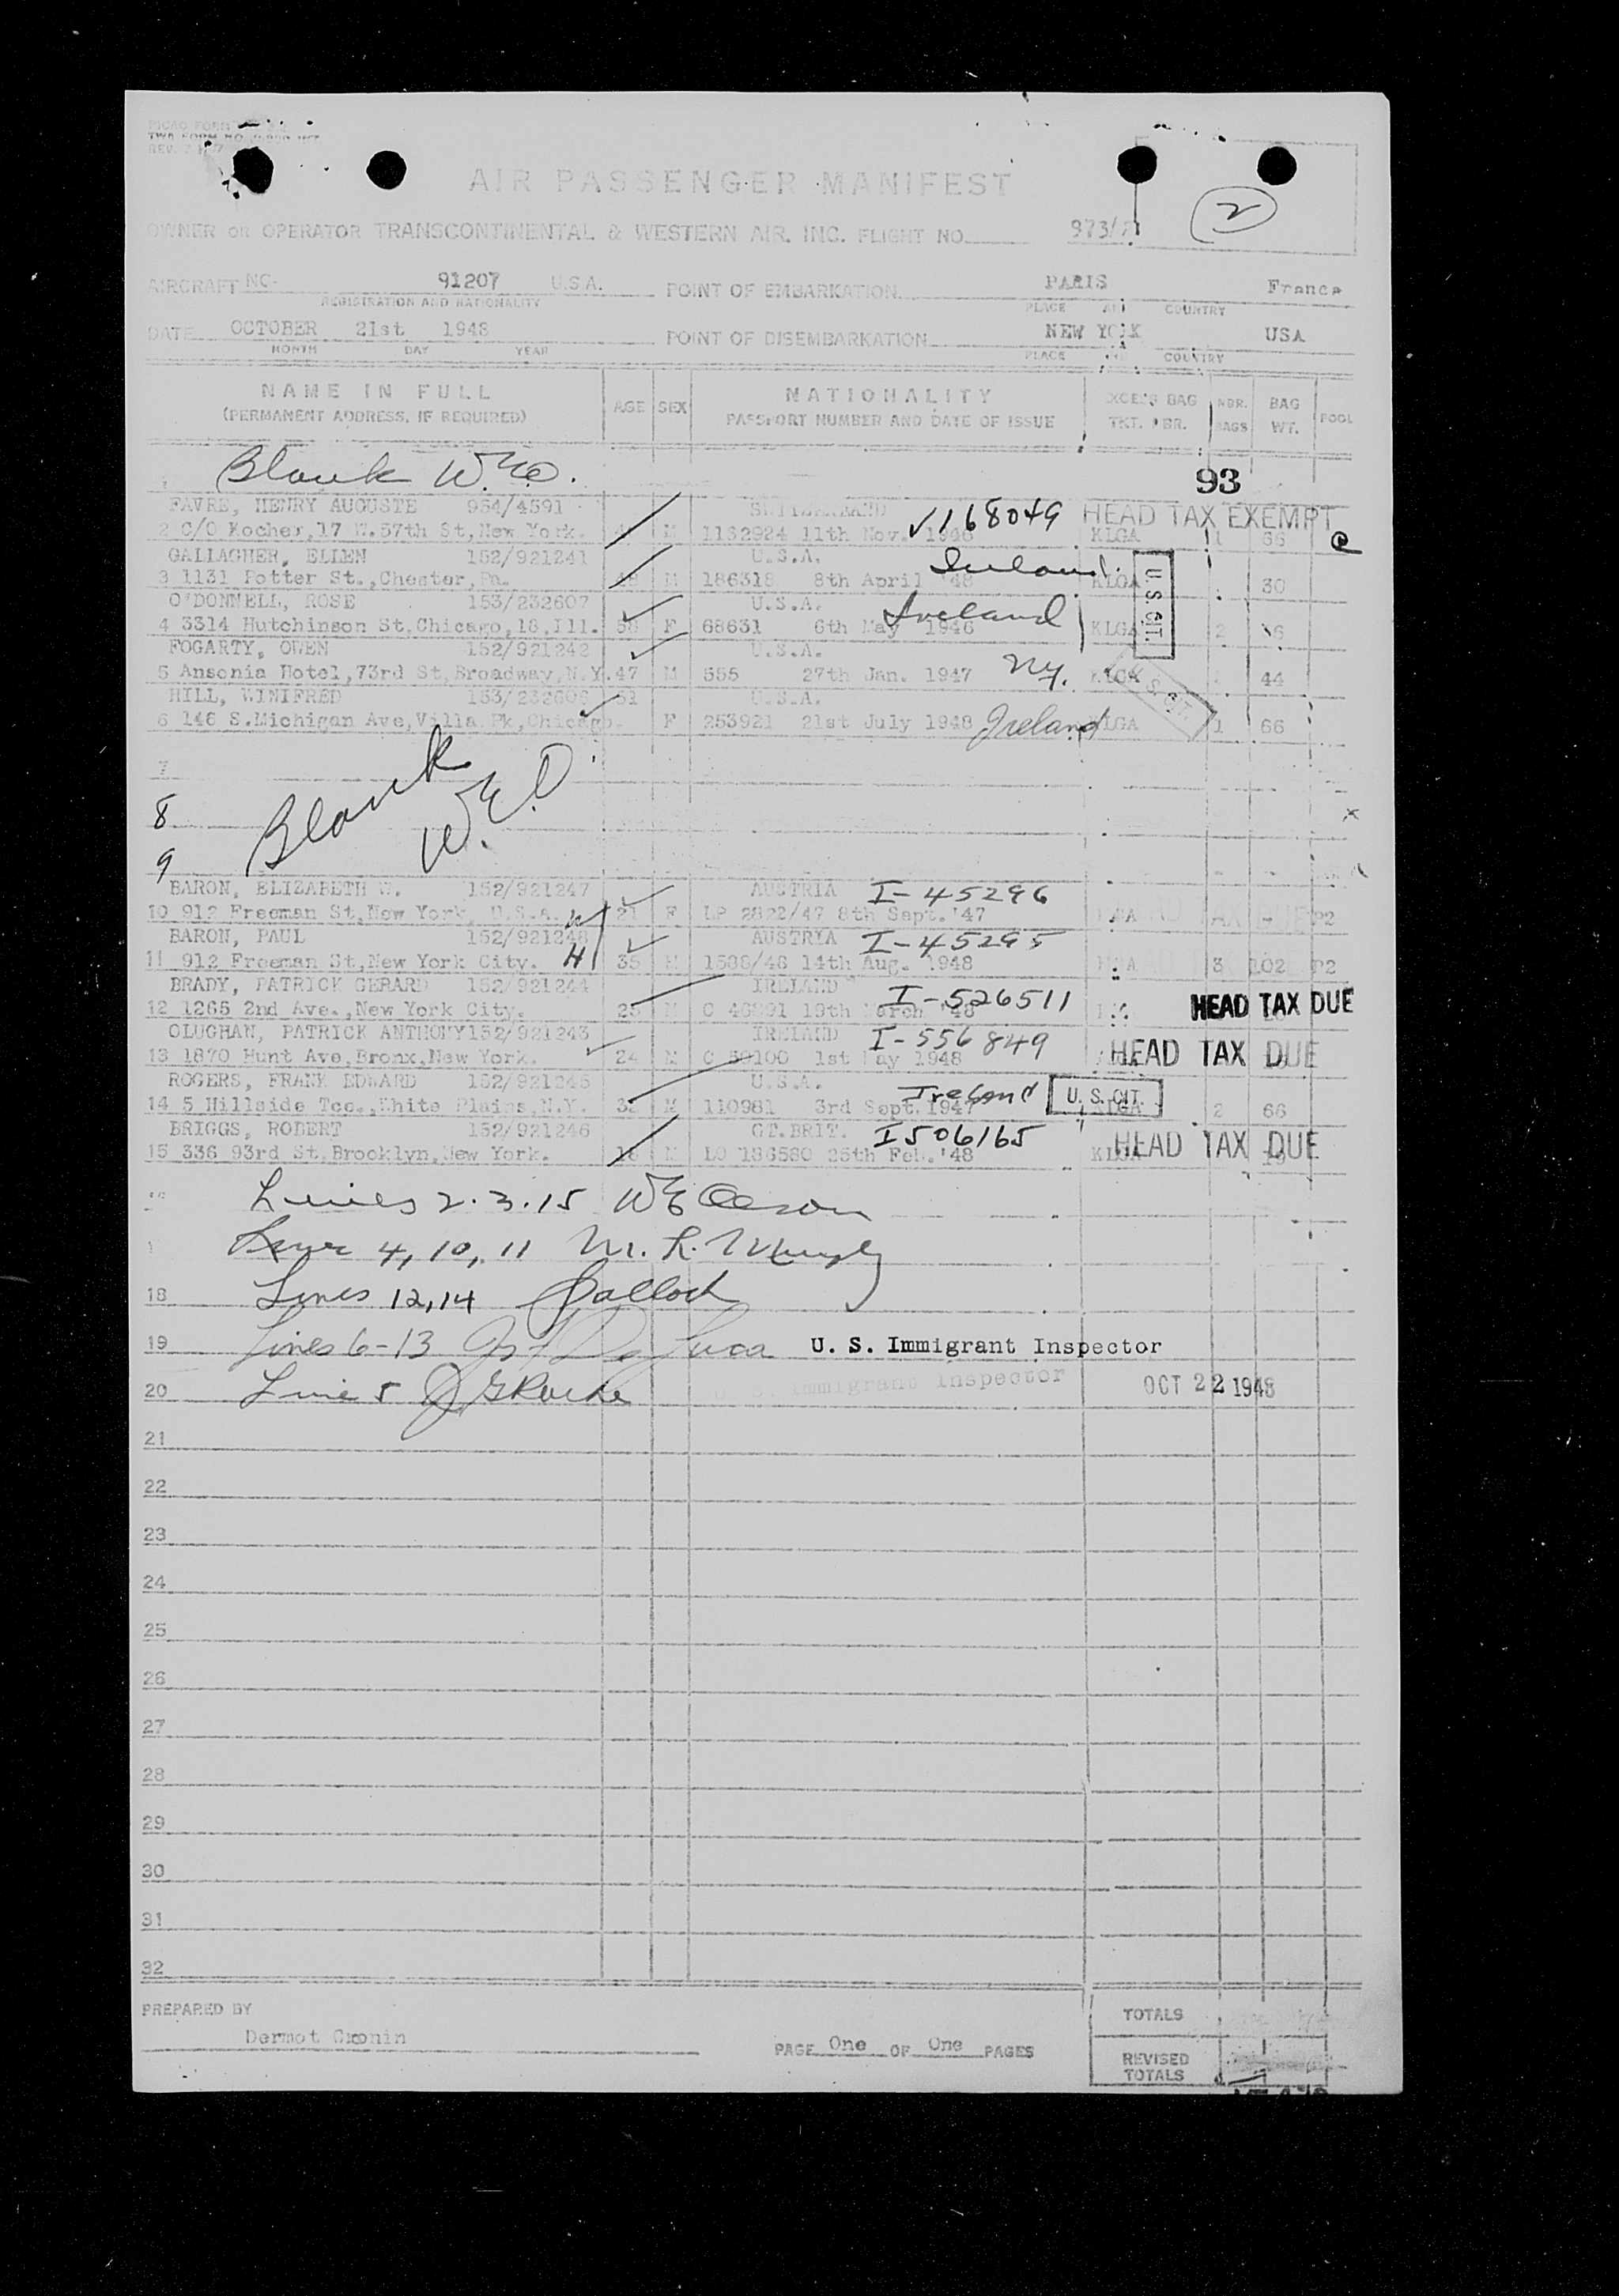 PICAO FORM
TWA FORM NO.
REV.
AIR PASSENGER MANIFEST
2
OWNER OR OPERATOR TRANSCONTINENTAL & WESTERN AIR. INC. FLIGHT NO. 973/21
AIRCRAFT NC. 91207 U.S.A. POINT OF EMBARKATION PARIS France
REGISTRATION AND NATIONALITY PLACE AND COUNTRY
DATE OCTOBER 21st 1948 POINT OF DISEMBARKATION NEW YORK USA
MONTH DAY YEAR PLACE AND COUNTRY
NAME IN FULL AGE SEX NATIONALITY EXCESS BAG NBR. BAG POOL
(PERMANENT ADDRESS, IF REQUIRED) PASSPORT NUMBER AND DATE OF ISSUE TKT. NBR. BAGS WT.
1 Blank W.E.O. 93
FAVRE, HENRY AUGUSTE 954/4591 SWITZERLAND 168049 HEAD TAX EXEMPT
2 C/O Kocher, 17 W.57th St, New York. M 1132924 11th Nov. 1946 KLGA 1 66
GALLAGHER, ELLEN 152/921241 U.S.A. Ireland
3 1131 Potter St., Chester, Pa. M 186318 8th April '48 KLGA 30 U.S. CIT.
O'DONNELL, ROSE 153/232607 U.S.A. Ireland
4 3314 Hutchinson St, Chicago, 18, Ill. 58 F 68631 6th May 1946 KLGA 2
FOGARTY, OWEN 152/921242 U.S.A. NY.
5 Ansonia Hotel, 73rd St, Broadway, N.Y. 47 M 555 27th Jan. 1947 KLGA 44 U.S. CIT.
HILL, WINIFRED 153/232608 51 U.S.A.
6 146 S.Michigan Ave, Villa Pk, Chicago. F 253921 21st July 1948 Ireland KLGA 1 66
7
8 Blank
9 W.E.O.
BARON, ELIZABETH W. 152/921247 AUSTRIA I-45296
10 912 Freeman St, New York, U.S.A. W 21 F LP 2822/47 8th Sept.'47 P2
BARON, PAUL 152/921248 AUSTRIA I-45295
11 912 Freeman St, New York City. H 35 M 1588/48 14th Aug. 1948 3 102 P2
BRADY, PATRICK GERARD 152/921244 IRELAND I-526511
12 1265 2nd Ave., New York City. 25 M C 46891 19th March '48 HEAD TAX DUE
OLUGHAN, PATRICK ANTHONY 152/921243 IRELAND I-556849
13 1870 Hunt Ave, Bronx, New York. 24 M C 50100 1st May 1948 HEAD TAX DUE
ROGERS, FRANK EDWARD 152/921245 U.S.A. Ireland U.S. CIT.
14 5 Hillside Tce., White Plains, N.Y. 32 M 110981 3rd Sept. 1947 KLGA 2 66
BRIGGS, ROBERT 152/921246 GT.BRIT. I506165
15 336 93rd St, Brooklyn, New York. 18 M LO 186580 25th Feb.'48 KLGA HEAD TAX DUE
Lines 2.3.15 WE Oleson
Lines 4, 10, 11 M. R. Murphy
18 Lines 12, 14
19 Lines 6-13 De Luca U. S. Immigrant Inspector
20 Line 5 U. S. Immigrant Inspector OCT 22 1948
21
22
23
24
25
26
27
28
29
30
31
32
PREPARED BY TOTALS
Dermot Cronin PAGE One OF One PAGES
REVISED TOTALS